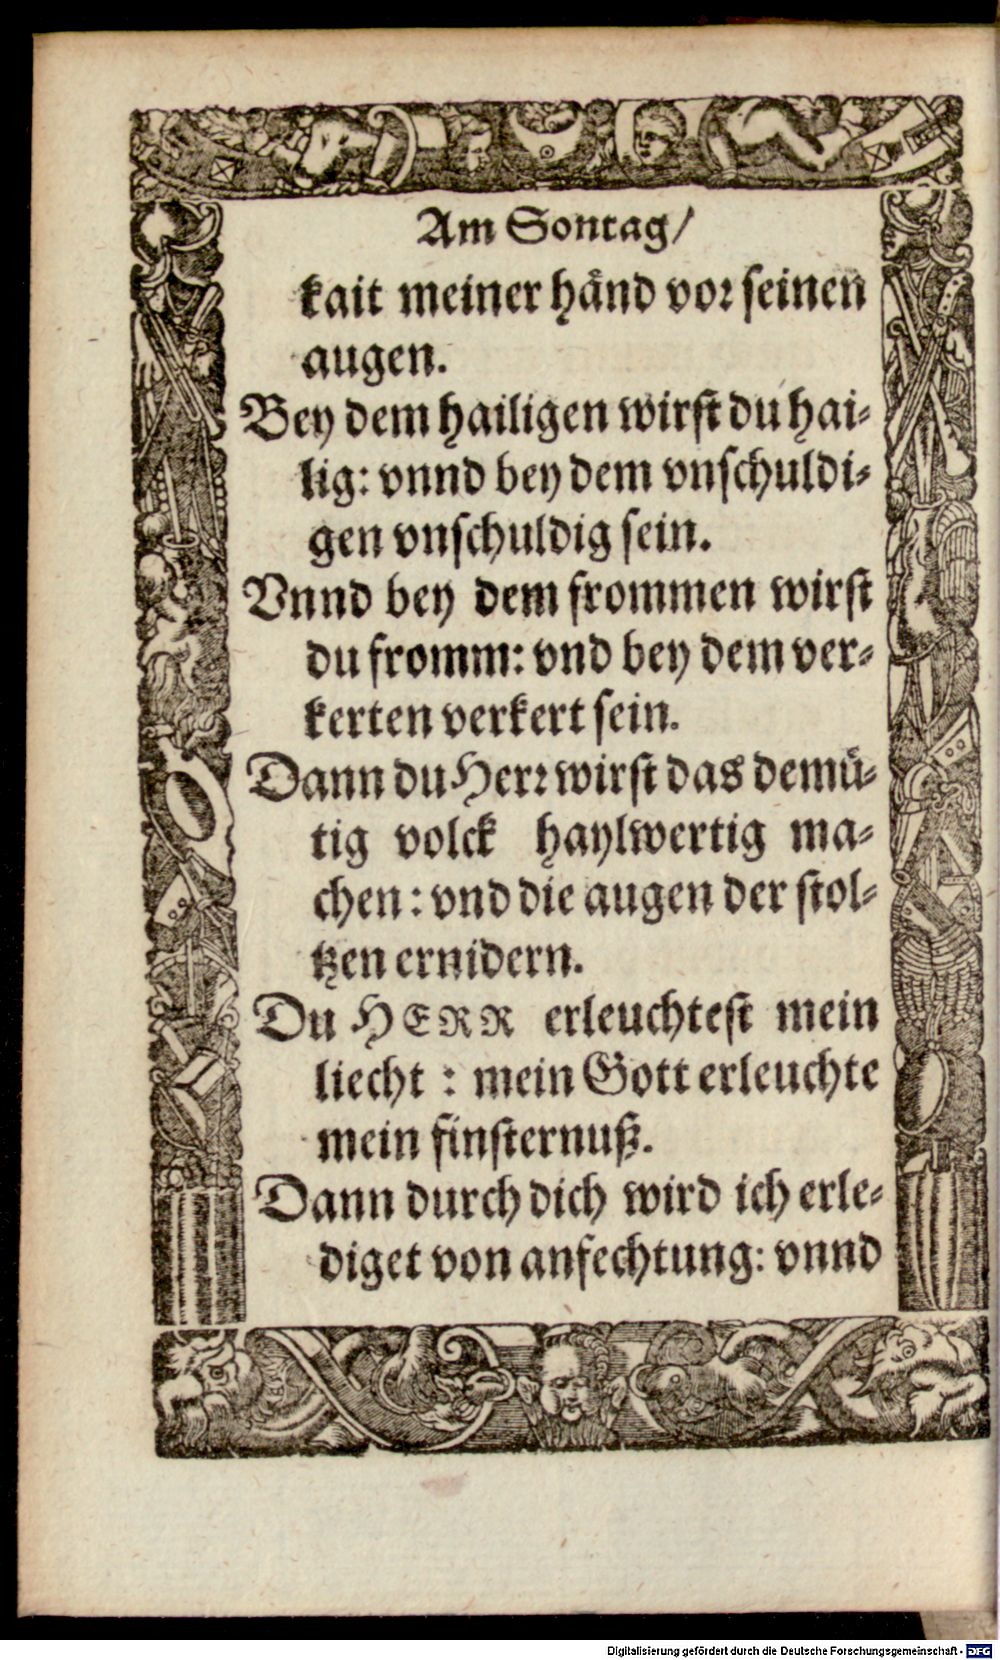 Am Sontag/
kait meiner händ vor seinen
augen.
Bey dem hailigen wirst du hai-
lig: vnnd bey dem vnschuldi-
gen vnschuldig sein.
Vnnd bey dem frommen wirst
du fromm: vnd bey dem ver-
kerten verkert sein.
Dann du Herr wirst das demü-
tig volck haylwertig ma-
chen: vnd die augen der stol-
tzen ernidern.
Du HERR erleuchtest mein
liecht : mein Gott erleuchte
mein finsternuß.
Dann durch dich wird ich erle-
diget von anfechtung: vnnd
Digitalisierung gefördert durch die Deutsche Forschungsgemeinschaft - DFG